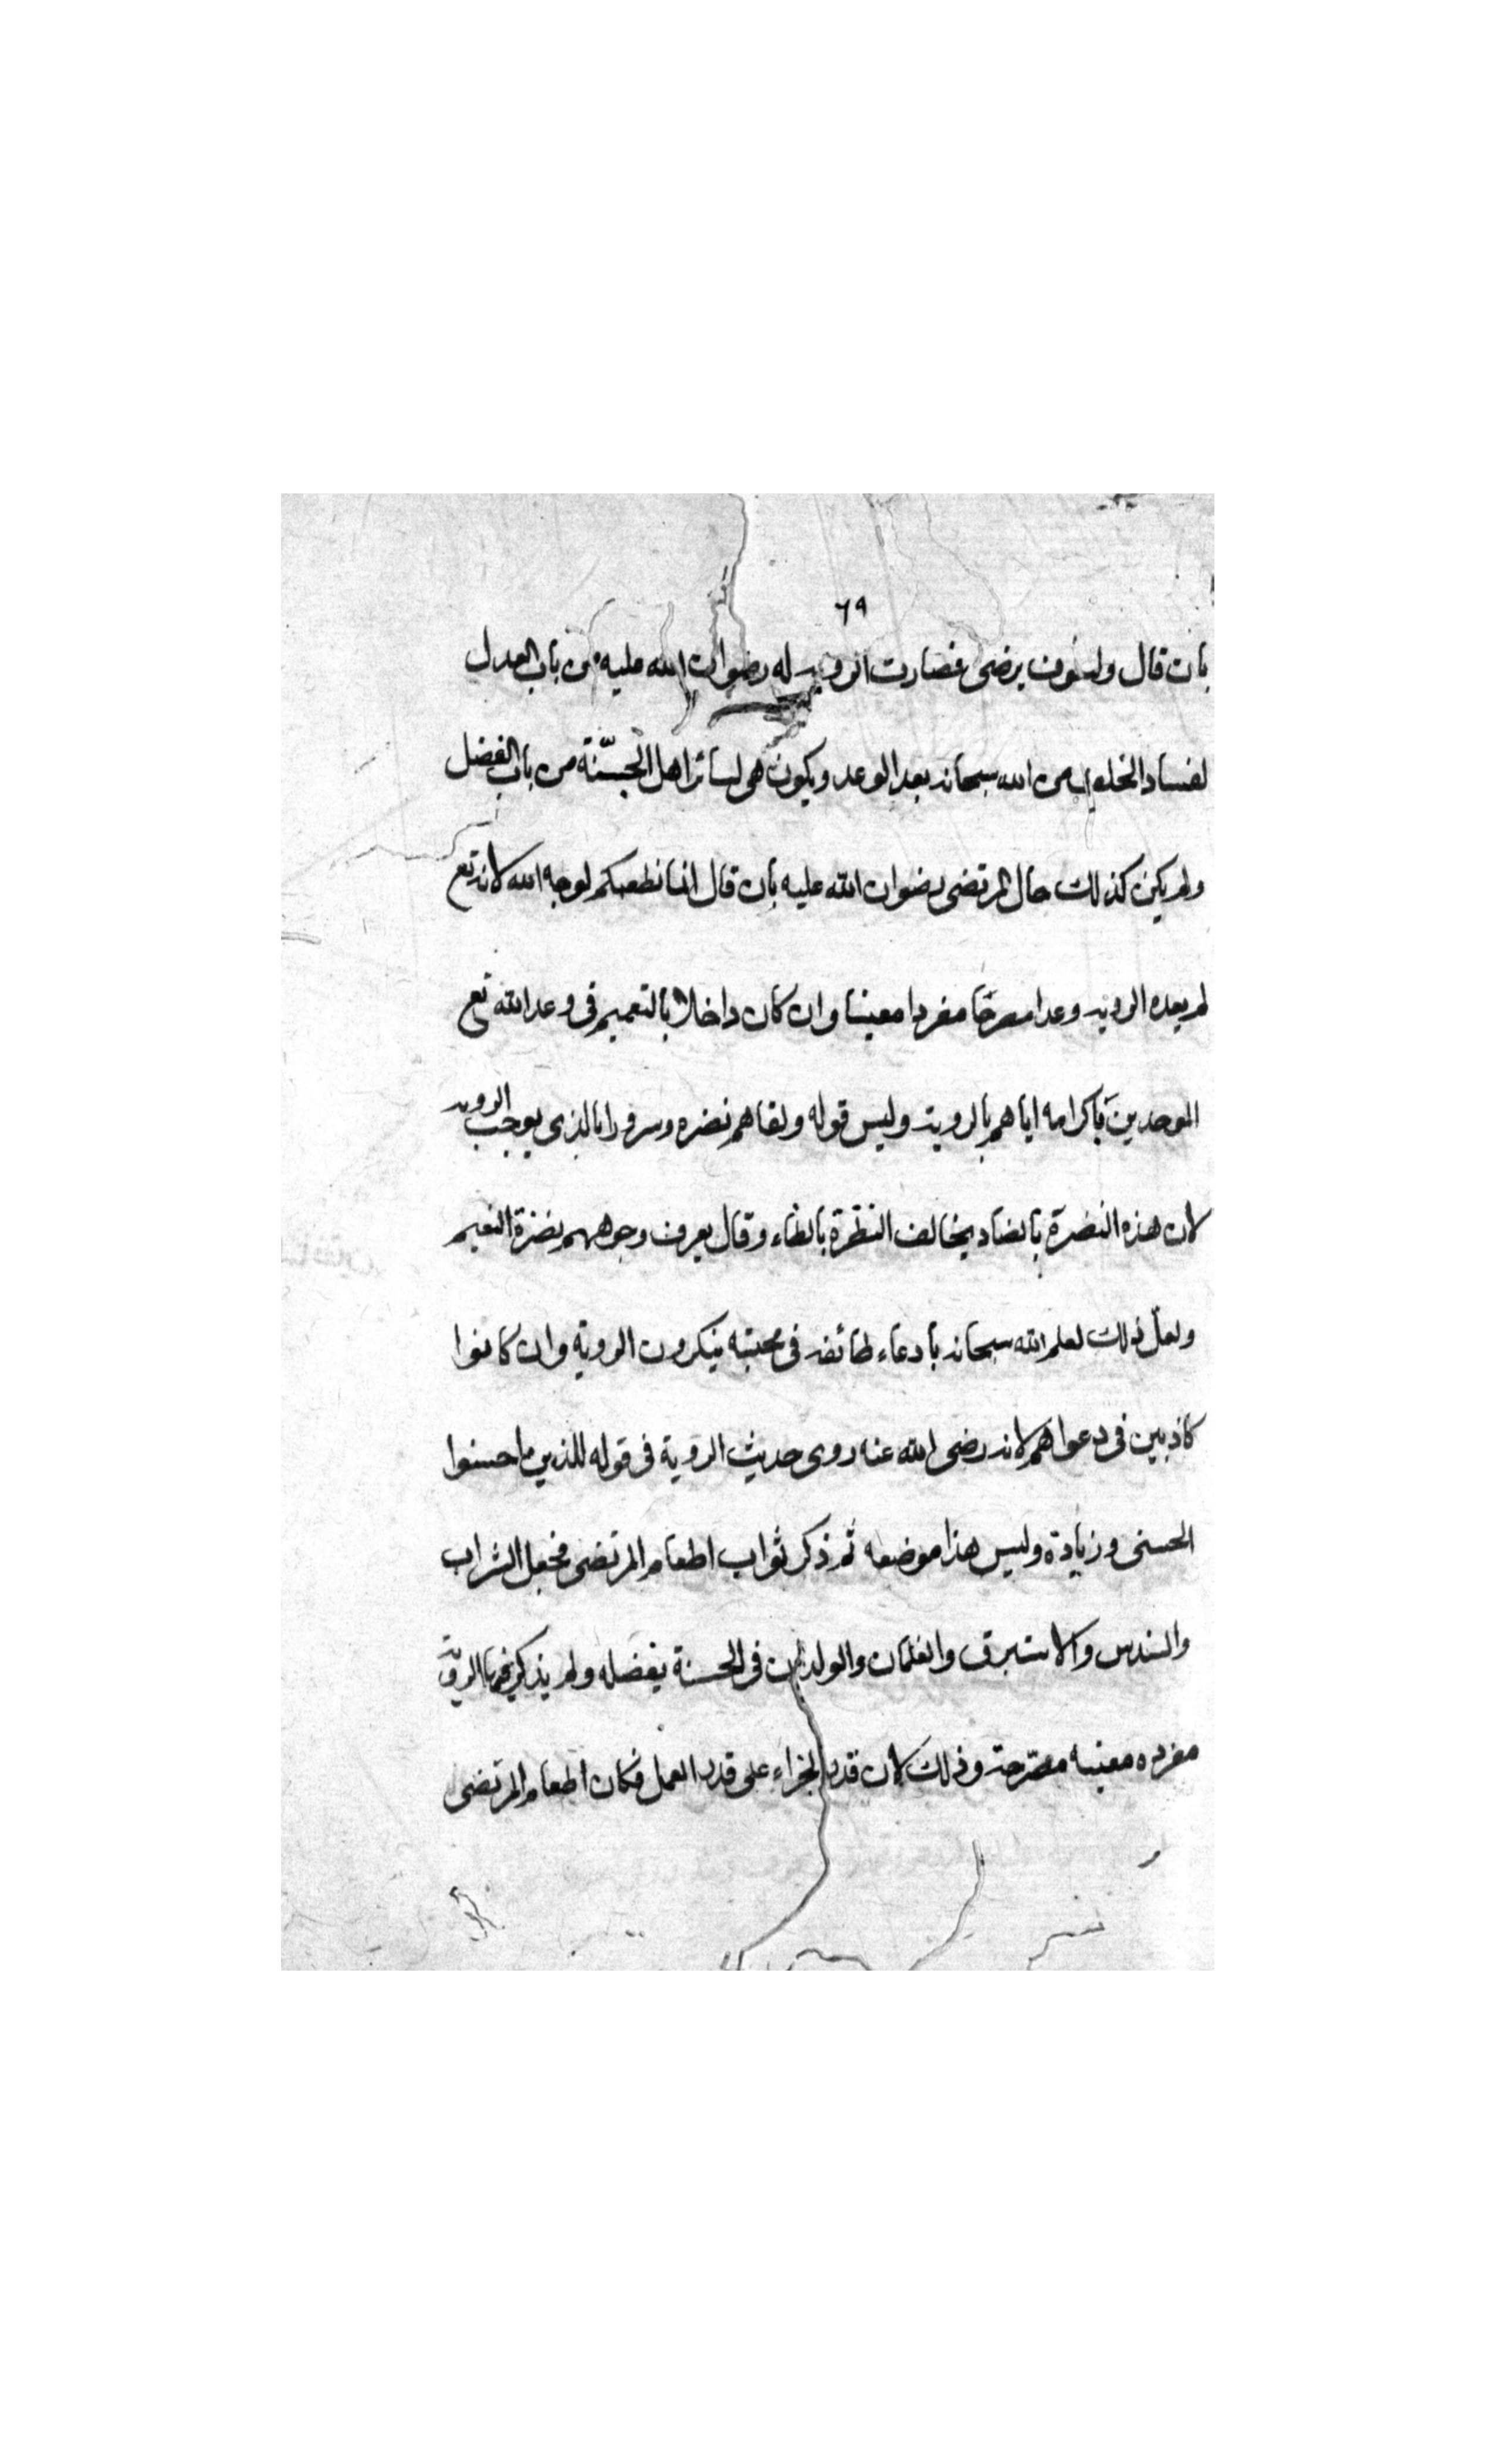 ٦٩
بان قال ولسوف يرضى فصارت الروية له رضوان الله عليه من باب العدل
لفساد الخلف من الله سبحانه بعد الوعد ويكون هى لسائر اهل الجسّنة من باب الفضل
ولم يكن كذلك حال المرتضى رضوان الله عليه بان قال انما نطعمكم لوجه الله لانه تع
لم يعده الروية وعدا مصرحا مفردا معينا وان كان داخلا بالتعميم فى وعد الله تع
الموحدين باكرامه اياهم بالروية وليس قوله ولقاهم نضره وسرورا بالذى يوجب الروية
لان هذه النضرة بالضاد يخالف النظرة بالظاء وقال يعرف وجوههم نضرة النعيم
ولعلّ ذلك لعلم الله سبحانه بادعاء طائفه فى محبته ينكرون الروية وان كانوا
كاذبين فى دعواهم لانه رضى الله عنه روى حديث الروية فى قوله للذين احسنوا
الحسنى وزيادة وليس هذا موضعه ثم ذكر ثواب اطعام المرتضى فجعل الشراب
والسندس والاستبرق والغلمان والولدان فى الحسنة بفضله ولم يذكر فيها الروية
مفرده معينه مصرّحة وذلك لان قدر الجزاء على قدر العمل فكان اطعام المرتضى